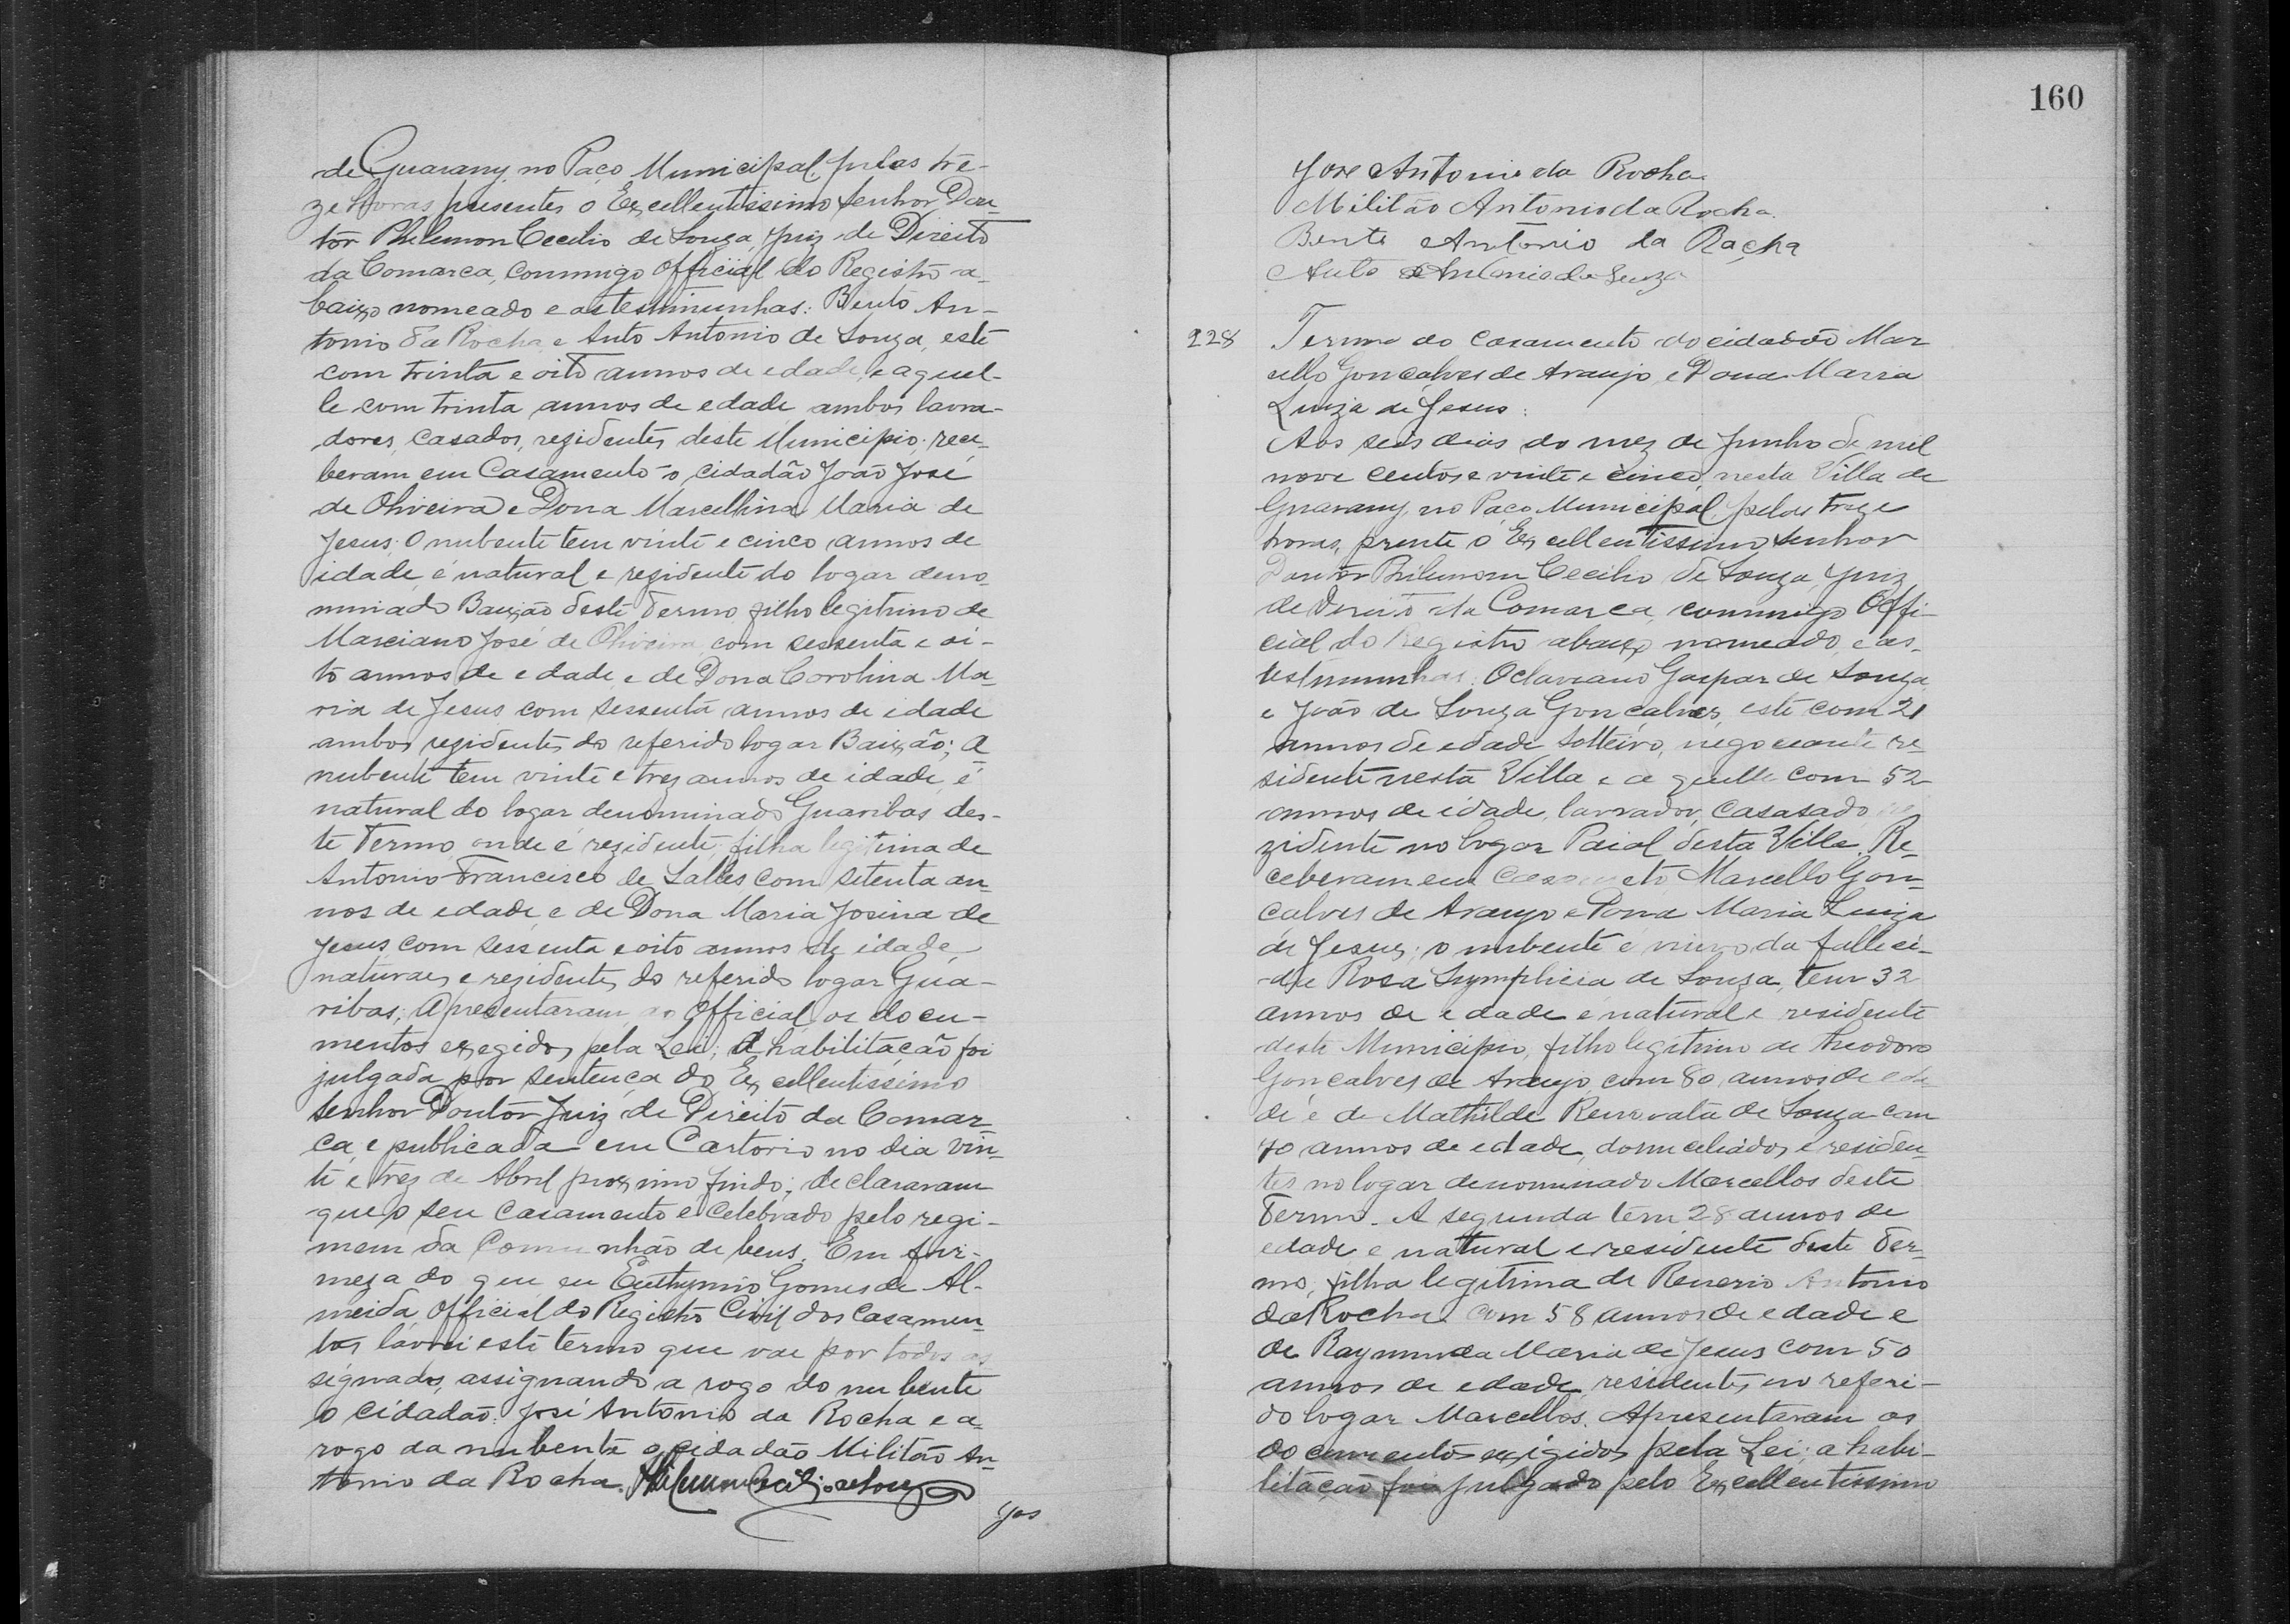 de Guarany, no Paço Municipal, pelas tre-
ze horas, presentes o Excellentissimo Senhor Dou-
tor Philemon Cecilio de Souza, Juiz de Direito
da Comarca, commigo Official do Registro a-
baixo nomeado e as testimunhas: Bento An-
tonio da Rocha e Auto Antonio de Souza, este
com trinta e oito annos de edade, e aquel-
le com trinta annos de edade ambos lavra-
dores, casados, rezidentes deste Municipio; rece-
beram em Casamento o cidadão João José
de Oliveira e Dona Marcellina Maria de
Jesus; O nubente tem vinte e cinco annos de
idade, é natural e rezidente do logar deno-
minado Baixão deste Termo, filho legitimo de
Marciano José de Oliveira, com sessenta e oi-
to annos de edade, e de Dona Carolina Ma-
ria de Jesus com sessenta annos de edade
ambos rezidentes do referido logar Baixão; A
nubente tem vinte e trez annos de idade, é
natural do logar denominado Guaribas des-
te Termo onde é rezidente, filha legitima de
Antonio Francisco de Salles com setenta an-
nos de edade, e de Dona Maria Josina de
Jesus, com sessenta e oito annos de idade,
naturaes e rezidentes do referido logar Gua-
ribas; Apresentaram ao Official os docu-
mentos exegidos pela Lei; A habilitação foi
julgada por sentença do Excellentissimo
Senhor Doutor Juiz de Direito da Comar-
ca, e publicada em Cartorio no dia vin-
te e trez de Abril proximo findo; declararam
que o seu Casamento é celebrado pelo regi-
mem da Comunhão de bens. Em fir-
meza do que, eu Euthymio Gomes de Al-
meida, Official do Registro Civil dos Casamen-
tos lavrei este termo que vae por todos as
signados, assignando a rogo do nubente
o cidadão: José Antonio da Rocha e a
rogo da nubente o cidadão Militão An-
tonio da Rocha. Philemon Cecilio de Souza
Jos
160
Jose Antonio da Rocha
Militão Antonio da Rocha.
Bento Antonio da Racha
Auto Antonio de Souza
228 Termo do Casamento do cidadão Mar
cello Gonçalves de Araujo e Dona Maria
Luiza de Jesus:
Aos seis dias do mez de Junho de mil
nove centos e vinte e cinco, nesta Villa de
Guarany, no Paço Municipal, pelas treze
horas, prente o Excellentissimo Senhor
Doutor Philemom Cecilio de Souza, Juiz
de Direito da Comarca, commigo Offi-
cial do Registro abaixo nomeado, e as
testimunhas: Octaviano Gaspar de Souza
e João de Souza Gonçalves, este com 21
annos de edade solteiro, negoceante re-
sidente nesta Villa e a quelle com 52
annos de idade, lavrador, casasado re
zidente no logar Paial desta Villa. Re-
ceberam em Casameto Marcello Gon-
çalves de Araujo e Dona Maria Luiza
de Jesus; o nubente é viuvo da falleci-
da Rosa Symplicia de Souza, tem 32
annos de edade e natural e residente
deste Municipio, filho legitimo de Theodoro
Gonçalves de Araujo, com 80 annos de eda
de e de Mathilde Renovata de Souza com
70 annos de edade, domiciliados e residen-
tes no logar denominado Marcellos deste
Termo. A segunda tem 28 annos de
edade e natural e residente deste Ter-
mo, filha legitima de Renerio Antonio
da Rocha com 58 annos de edade e
de Raymunda Maria de Jesus com 50
annos de edade, residentes no referi-
do logar Marcellos. Apresentaram os
documentos exigidos pela Lei; a habi-
litação foi julgado pelo Excellentissimo